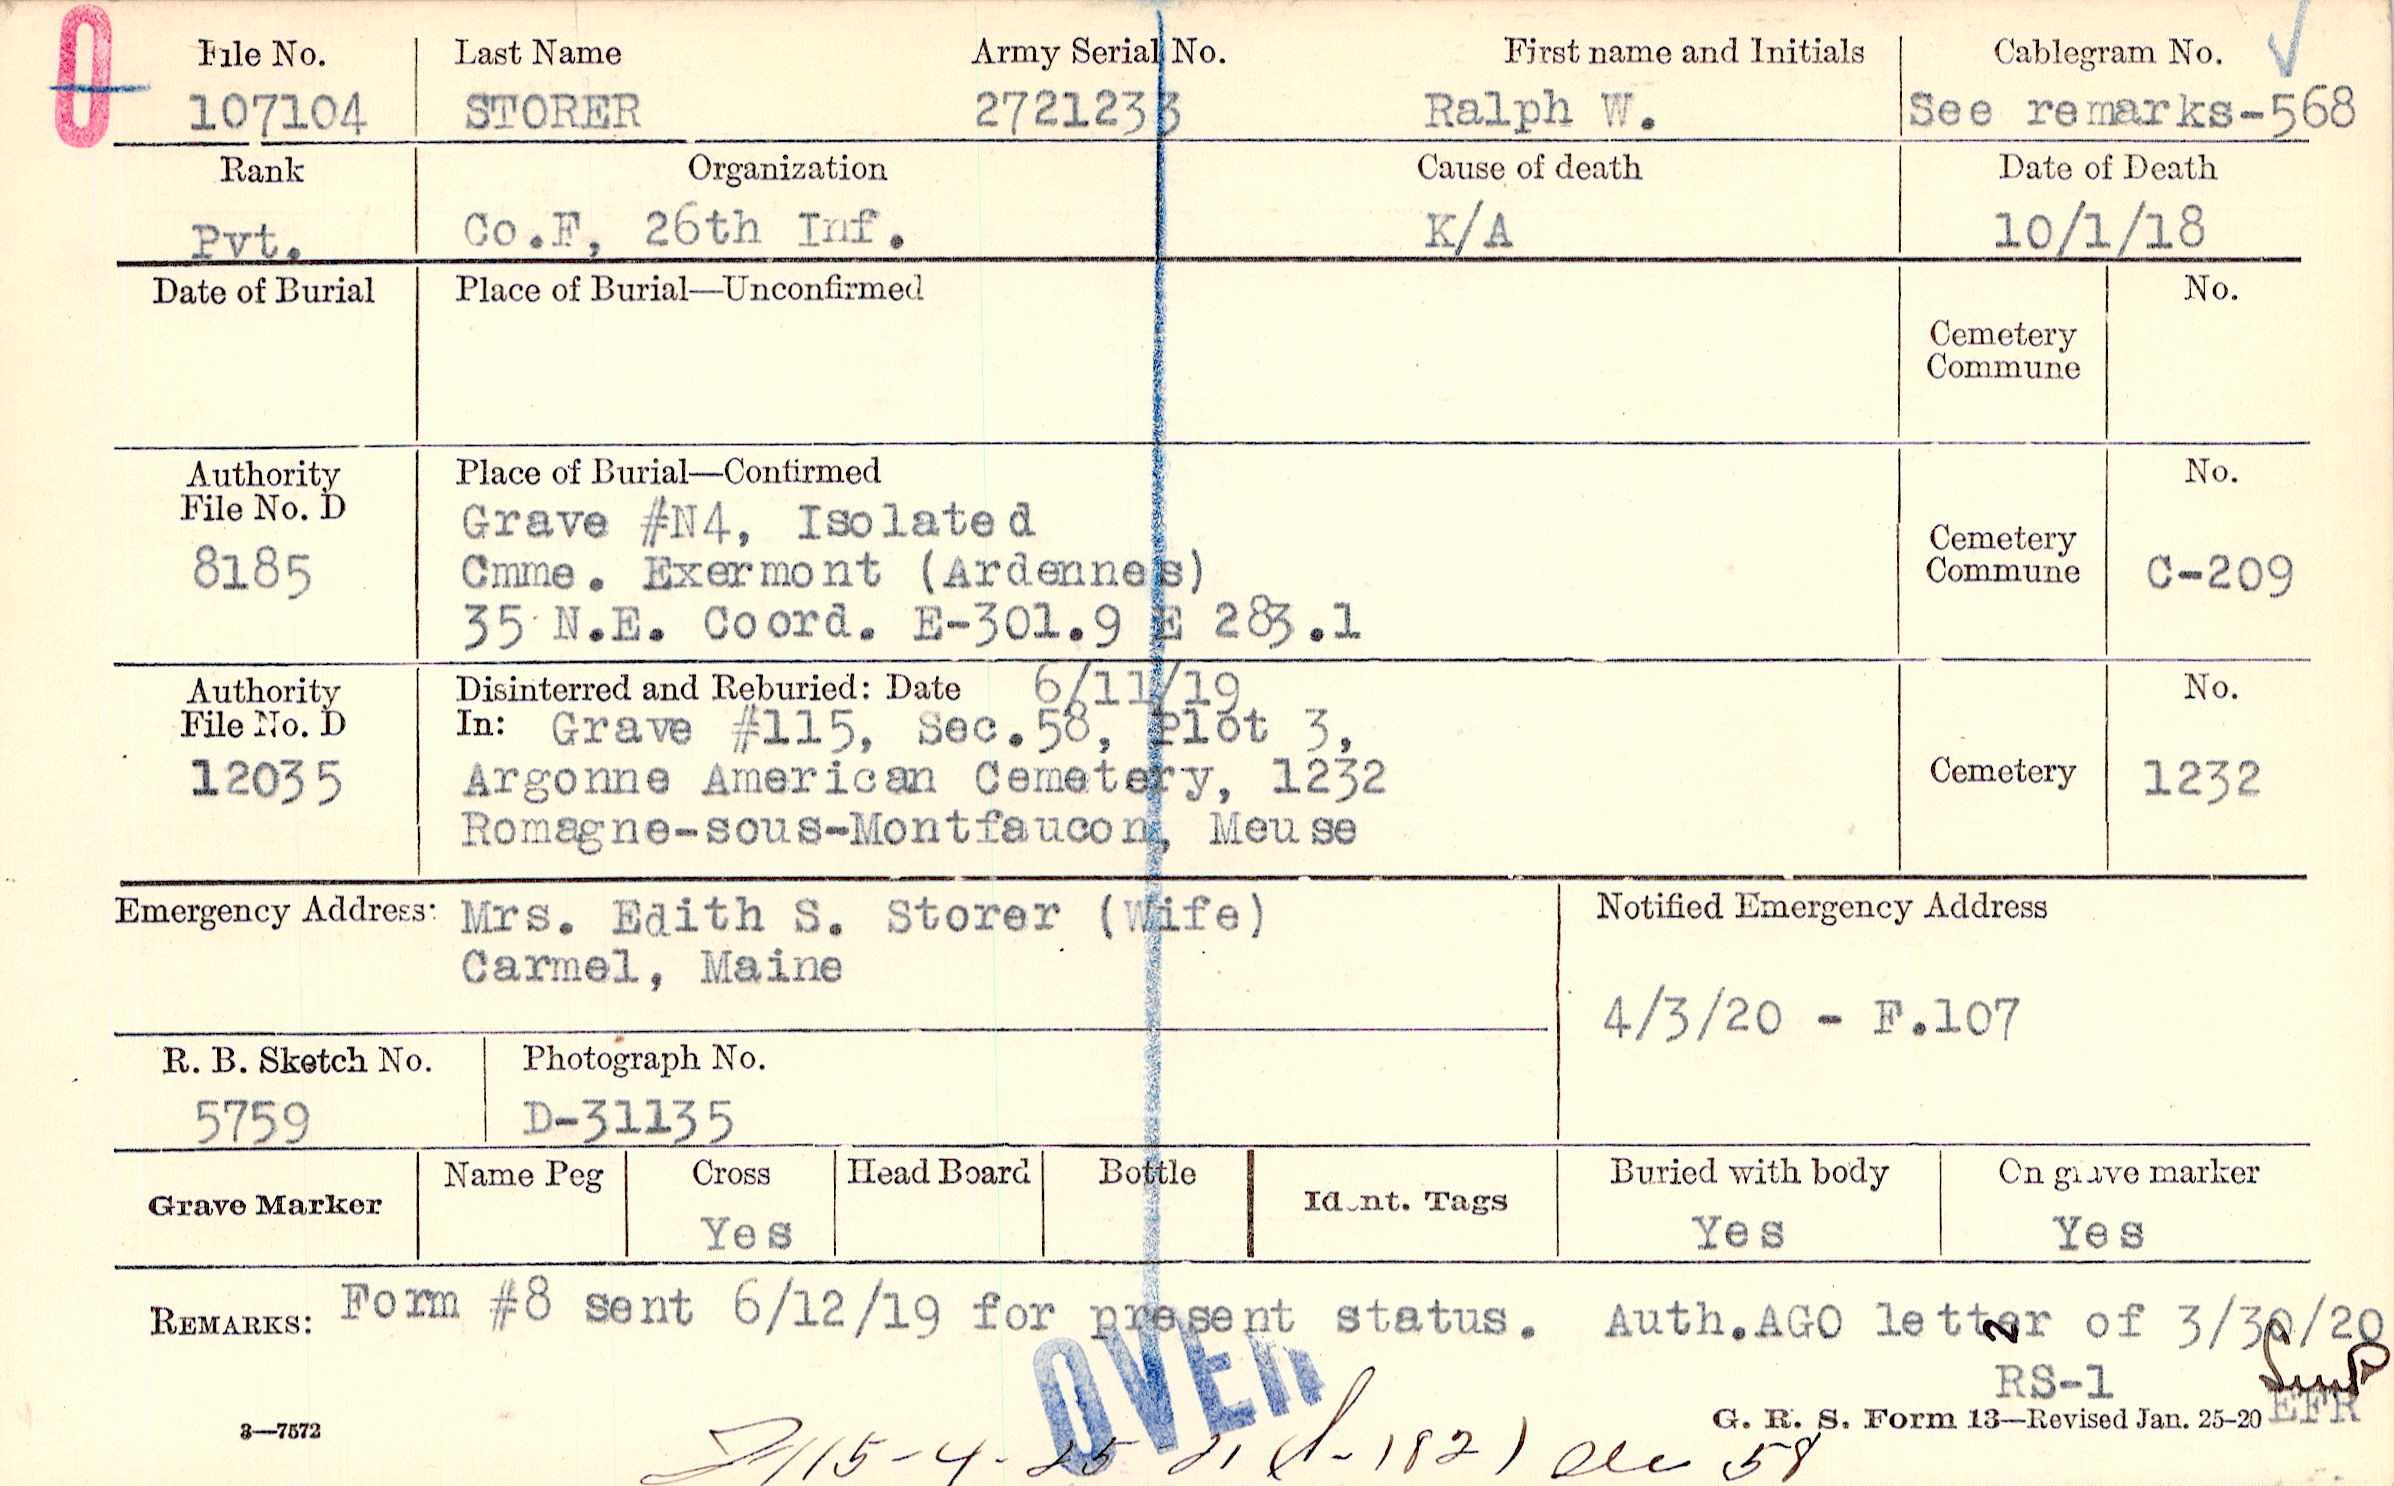 0
File No. Last Name Army Serial No. First name and Initials Cablegram No.
107104 STORER 2721233 Ralph W. See remarks-568
Rank Organization Cause of death Date of Death
Pvt. Co.F, 26th Inf. K/A 10/1/18
Date of Burial Place of Burial—Unconfirmed No.
Cemetery
Commune
Authority Place of Burial—Confirmed No.
File No. D Grave #N4, Isolated
8185 Cmme. Exermont (Ardennes) Cemetery
Commune C-209
35 N.E. Coord. E-301.9 E 283.1
Authority Disinterred and Reburied: Date 6/11/19 No.
File No. D In: Grave #115, Sec.58, Plot 3,
12035 Argonne American Cemetery, 1232 Cemetery 1232
Romagne-sous-Montfaucon, Meuse
Emergency Address: Mrs. Edith S. Storer (Wife) Notified Emergency Address
Carmel, Maine
4/3/20 - F.107
R. B. Sketch No. Photograph No.
5759 D-31135
Grave Marker Name Peg Cross Head Board Bottle Ident. Tags Buried with body On grave marker
Yes Yes Yes
REMARKS: Form #8 sent 6/12/19 for present status. Auth.AGO letter of 3/30/20
2
RS-1
OVER
3—7572 G. R. S. Form 13—Revised Jan. 25-20 EFR
115-4-25-21 58